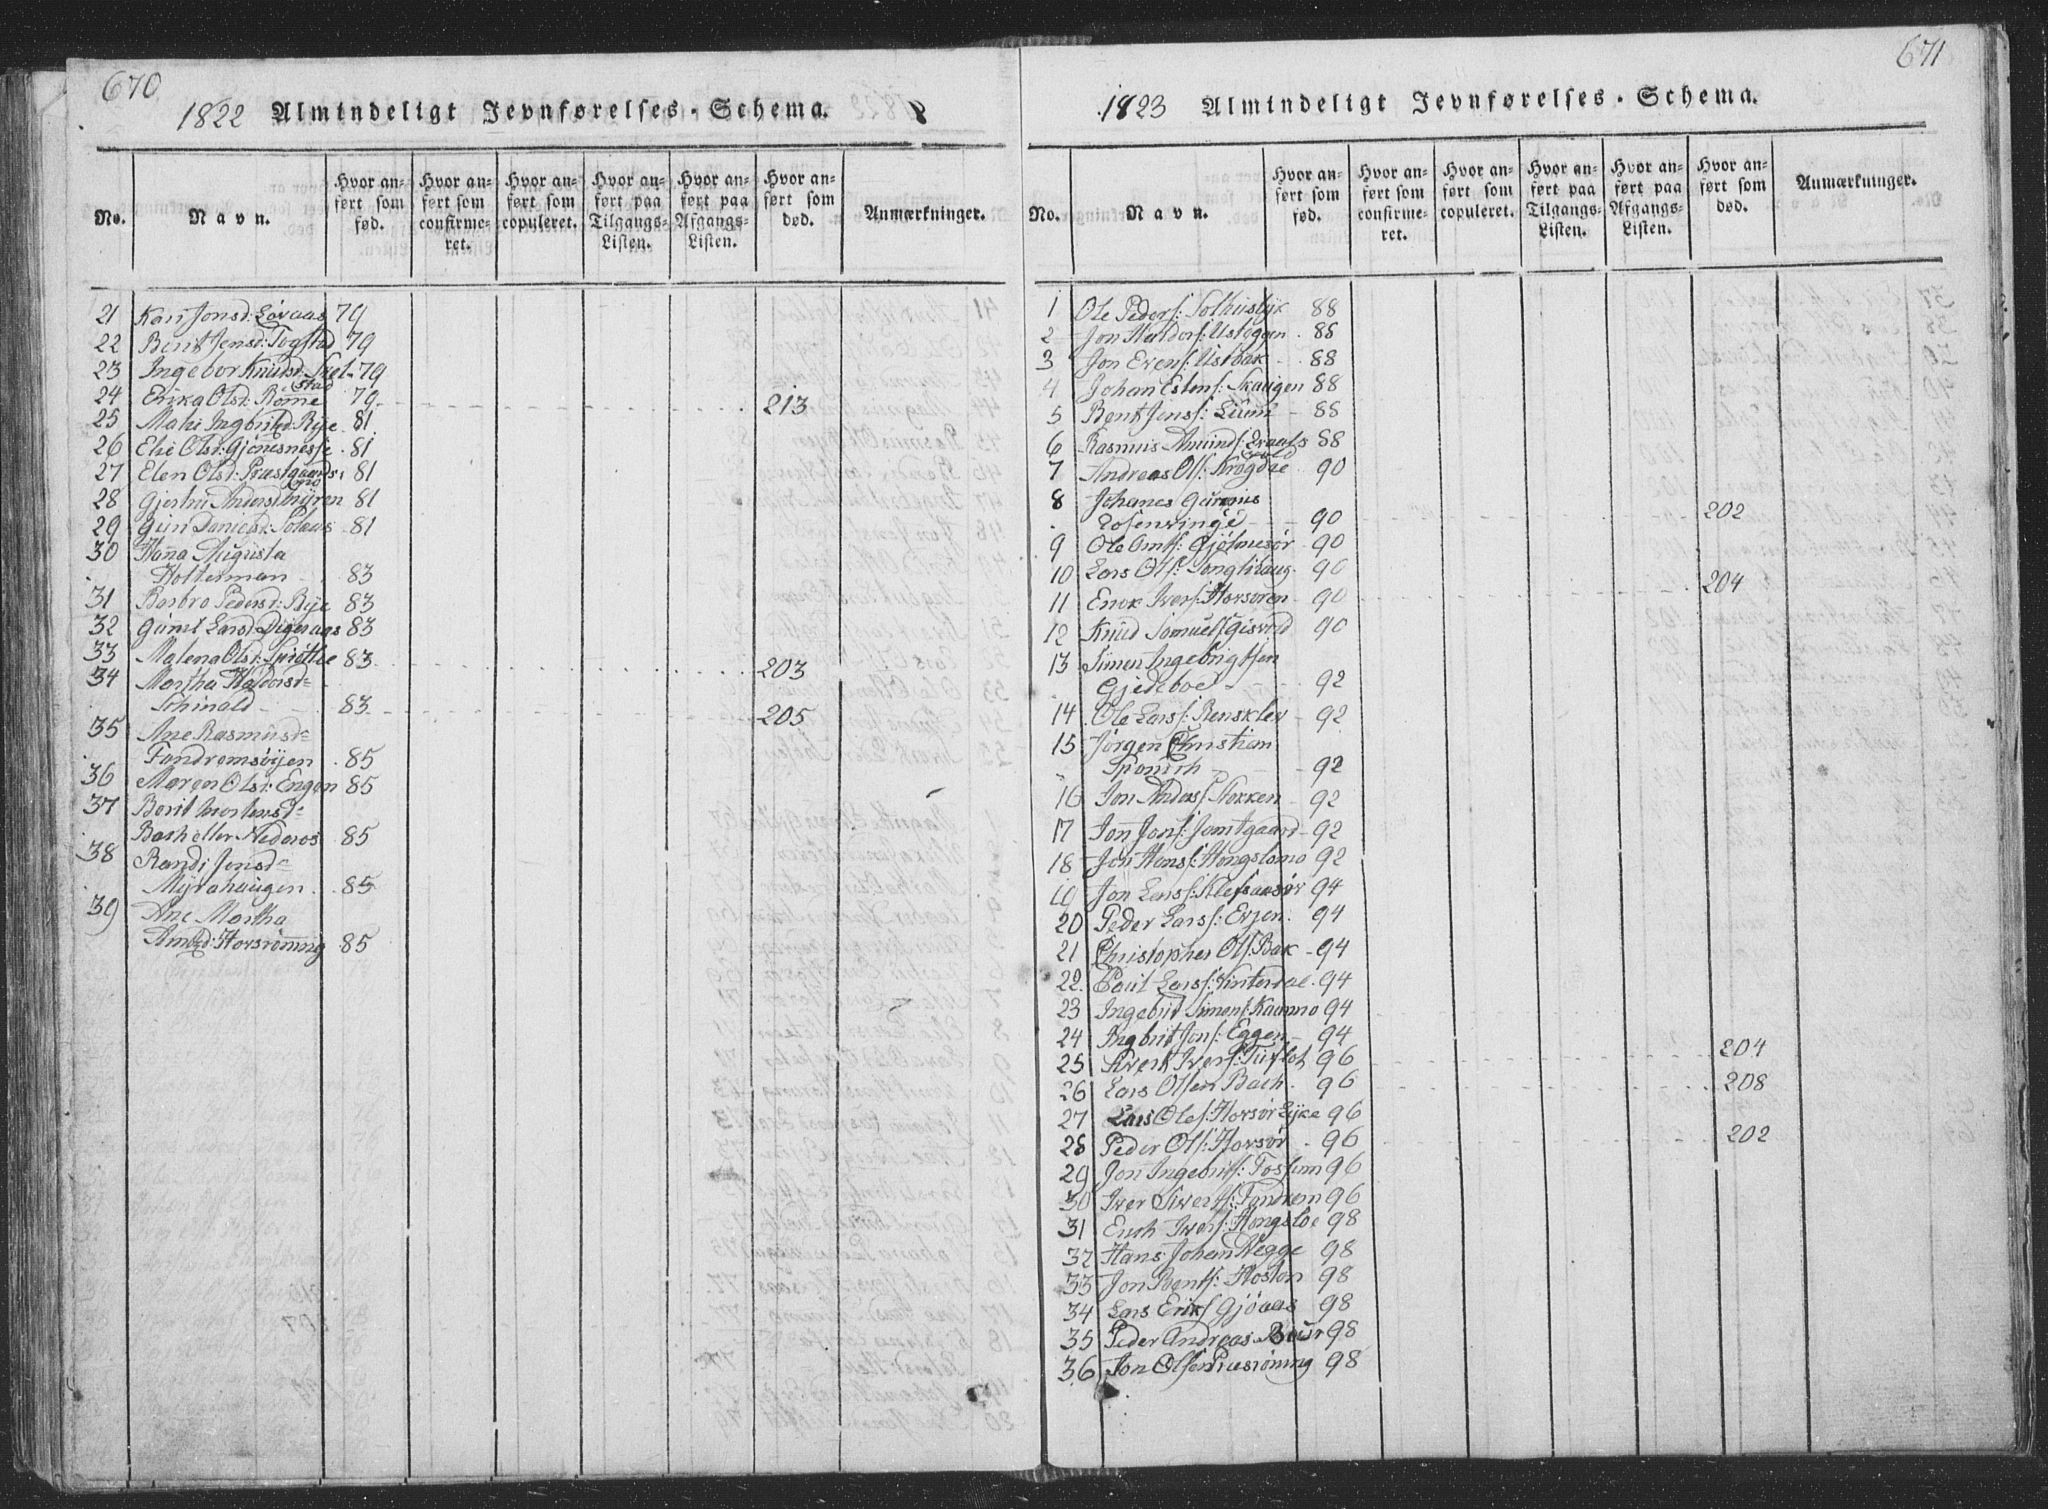 670
1822 Almindeligt Jevnførelses-Schema.
No.
Navn.
Hvor an-
ført som
fød.
Hvor an-
ført som
confirme-
ret.
Hvor an-
ført som
copuleret.
Hvor an-
ført paa
Tilgangs-
Listen.
Hvor an-
ført paa
Afgangs-
Listen.
Hvor an-
ført som
død.
Anmærkninger.
21 Kari Jonsd: Løvaas 79
22 Berit Jensd: Togstad 79
23 Ingebor Knudsd: Skel- 79
stad
24 Erika Olsd: Romme 79 213
25 Mali Ingbrigtsd Rye 81
26 Elie Olsd: Gjønesnesse 81
27 Elen Olsd: Præstgaards 81
28 Gjertru Andersd Myren 81
29 Guri Danielsd: Solaas 81
30 Hana Augusta
Holterman 83
31 Barbro Pedersd: Rye 83
32 Gunil Larsd Digeraas 83
33 Malena Olsd: 83 203
34 Martha Haldorsd
83 205
35 Ane Rasmusd
Fandremsøyen 85
36 Maren Olsd: Engen 85
37 Berit Mortensd
Bacheller Nederos 85
38 Randi Jensd
Myrahaugen 85
39 Ane Martha
Amundsd: Horsrønning 85
671
1823 Almindeligt Jevnførelses-Schema.
No.
Navn.
Hvor an-
ført som
fød.
Hvor an-
ført som
confirme-
ret.
Hvor an-
ført som
copuleret.
Hvor an-
ført paa
Tilgangs-
Listen.
Hvor an-
ført paa
Afgangs-
Listen.
Hvor an-
ført som
død.
Anmærkninger.
1 Ole Peders: Solhuslyk 88
2 Jon Haldors: Usteggen 88
3 Jon Evens: Ustbak 88
4 Johan Estens: Skaugen 88
5 Bent Jens: Lium 88
6 Rasmus Amunds: 88
7 Andreas Ols: Krogdae 90
8 Johanes Gunerius
Rosenvinge 90 202
9 Ole Arnts: Gjølmesør 90
10 Lars Ols: Songlihaug 90
11 Erick Ivers: Horsøren 90 204
12 Knud Samuels Gisvold 90
13 Simen Ingebrigtsen
Gjedeboe 92
14 Ole Lars: Rensklev 92
15 Jørgen Christian
92
16 Jon Anders: Stokken 92
17 Jon Jons: Jamtgaard 92
18 Jon Hans: Hongslomo 92
19 Jon Lars: Klefsaasør 94
20 Peder Lars: Evjen 94
21 Christopher Ols: Bak 94
22 Paul Lars: Vinterdal 94
23 Ingebrit Simens: Kaurmo 94
24 Ingbrit Jons: Eggen 94
25 Sivert Ivers: Tuflot 96 204
26 Lars Olsen Bach 96 208
27 Lars Oles: Horsør Lyke 96
28 Peder Ols: Horsør 96 202
29 Jon Ingebrits: Fossum 96
30 Iver Siverts: Fandrem 96
31 Erich Ivers: Hongsloe 98
32 Hans Johan Hegge 98
33 Jon Bents: Hoston 98
34 Lars Eriks Gjøaas 98
35 Peder Andreas Buur 98
36 Jon Olsen Præsrøning 98